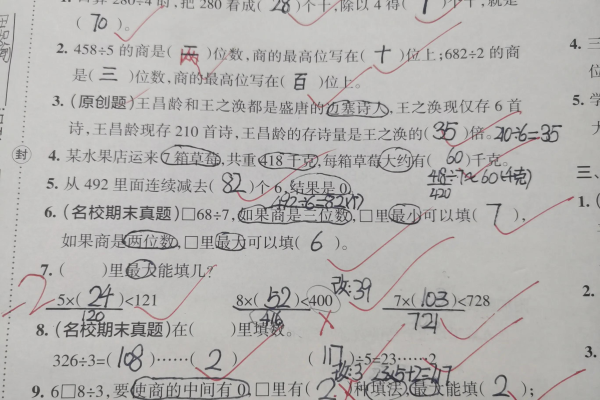 1. 口算280÷4时,把280看成(28)个十,除以4得(7)个十,就是
(70)。
2. 458÷5的商是(两)位数,商的最高位写在(十)位上;682÷2的商
是(三)位数,商的最高位写在(百)位上。
3. (原创题)王昌龄和王之涣都是盛唐的边塞诗人,王之涣现仅存6首
诗,王昌龄现存210首诗,王昌龄的存诗量是王之涣的(35)倍。210÷6=35
4. 某水果店运来7箱草莓,共重418千克,每箱草莓大约有(60)千克。
418÷7≈60(千克)
420
5. 从492里面连续减去(82)个6,结果是0。
492÷6=82(个)
6. (名校期末真题)□68÷7,如果商是三位数,□里最小可以填(7),
如果商是两位数,□里最大可以填(6)。
7. ( )里最大能填几?
5×(24)<121 8×(52)<400 改:39 7×(103)<728
120 416 721
-2
8. (名校期末真题)在( )里填数。
326÷3=(108)……(2) (117)÷5=23……2
改:3 23×5+2=117
9. 6□8÷3,要使商的中间有0,□里有(2)种填法,最大能填(2);
封
三、
1.
2.
3.
4.
5.